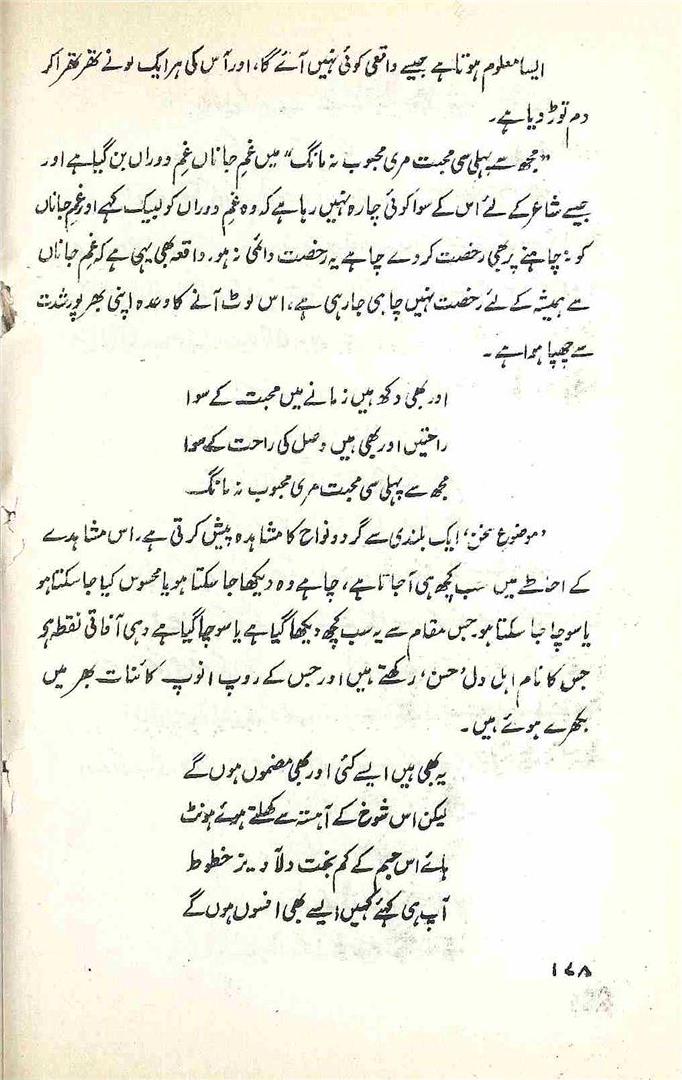 ایسا معلوم ہوتا ہے جیسے واقعی کوئی نہیں آئے گا، اور آس کی ہر ایک لو نے تھر تھرا کر
دم توڑ دیا ہے۔
”مجھ سے پہلی سی محبت مری محبوب نہ مانگ“ میں غمِ جاناں غمِ دوراں بن گیا ہے اور
جیسے شاعر کے لئے اس کے سوا کوئی چارہ نہیں رہا ہے کہ وہ غمِ دوراں کو لبیک کہے اور غمِ جاناں
کو نہ چاہنے پر بھی رخصت کر دے چاہے یہ رخصت دائمی نہ ہو۔ واقعہ بھی یہی ہے کہ غمِ جاناں
سے ہمیشہ کے لئے رخصت نہیں چاہی جا رہی ہے، اس لوٹ آنے کا وعدہ اپنی بھرپور شدت
سے چھپا ہوا ہے۔
اور بھی دکھ ہیں زمانے میں محبت کے سوا
راحتیں اور بھی ہیں وصل کی راحت کے سوا
مجھ سے پہلی سی محبت مری محبوب نہ مانگ
’موضوعِ سخن‘ ایک بلندی سے گرد و نواح کا مشاہدہ پیش کرتی ہے۔ اس مشاہدے
کے احاطے میں سب کچھ ہی آ جاتا ہے، چاہے وہ دیکھا جا سکتا ہو یا محسوس کیا جا سکتا ہو
یا سوچا جا سکتا ہو۔ جس مقام سے یہ سب کچھ دیکھا گیا ہے یا سوچا گیا ہے وہی آفاقی نقطہ ہے
جس کا نام اہل دل ’حسن‘ رکھتے ہیں اور جس کے روپ انوپ کائنات بھر میں
بکھرے ہوئے ہیں۔
یہ بھی ہیں ایسے کئی اور بھی مضموں ہوں گے
لیکن اس شوخ کے آہستہ سے کھلتے ہوئے ہونٹ
ہائے اس جسم کے کم بخت دلآویز خطوط
آپ ہی کہئے کہیں ایسے بھی افسوں ہوں گے
۱۶۸